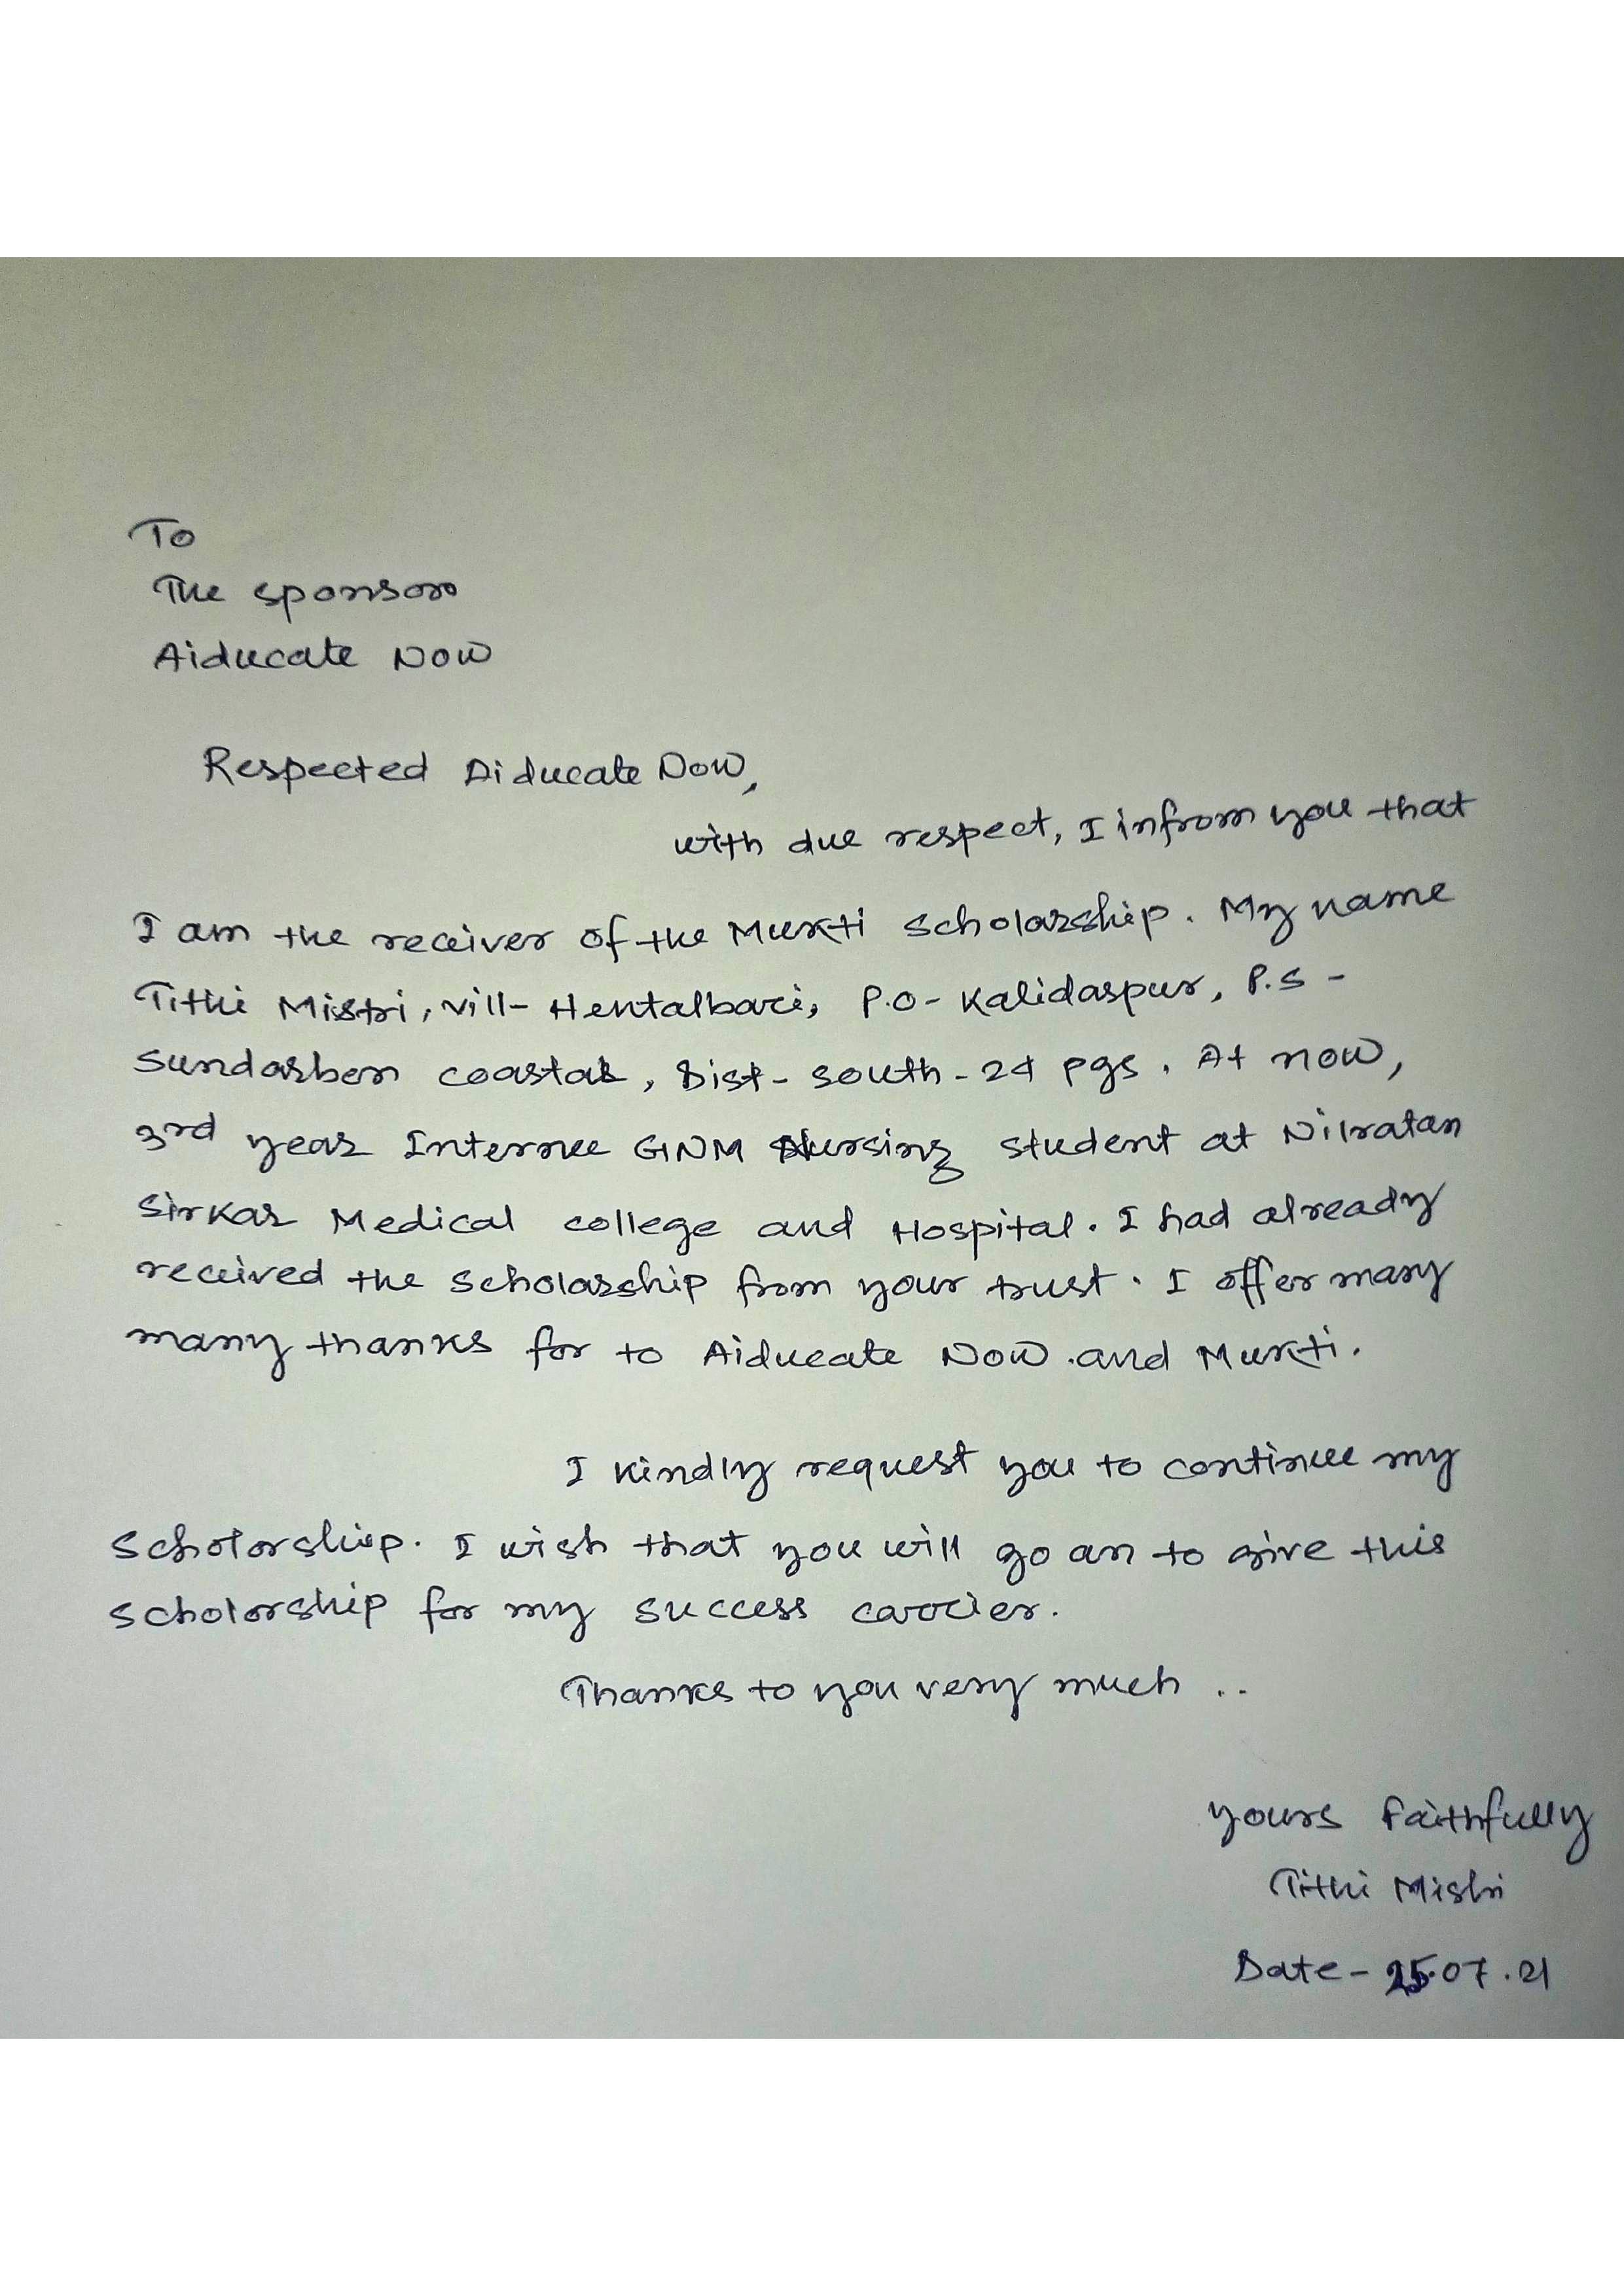 To
The sponsor
Aiducate Now
Respected Aiducate Now,
with due respect, I infrom you that
I am the receiver of the Mukti Scholarship. My name
Tithi Mistri, vill- Hentalbari, P.O- Kalidaspur, P.S -
Sundarban coastal, Dist- south-24 pgs. At now,
3rd year Internee GNM Nursing student at Nilratan
Sirkar Medical college and Hospital. I had already
received the scholarship from your trust. I offer many
many thanks for to Aiducate Now and Mukti.
I kindly request you to continue my
Scholorship. I wish that you will go an to give this
scholorship for my success carrier.
Thanks to you very much ..
yours faithfully
Tithi Mistri
Date- 25.07.21